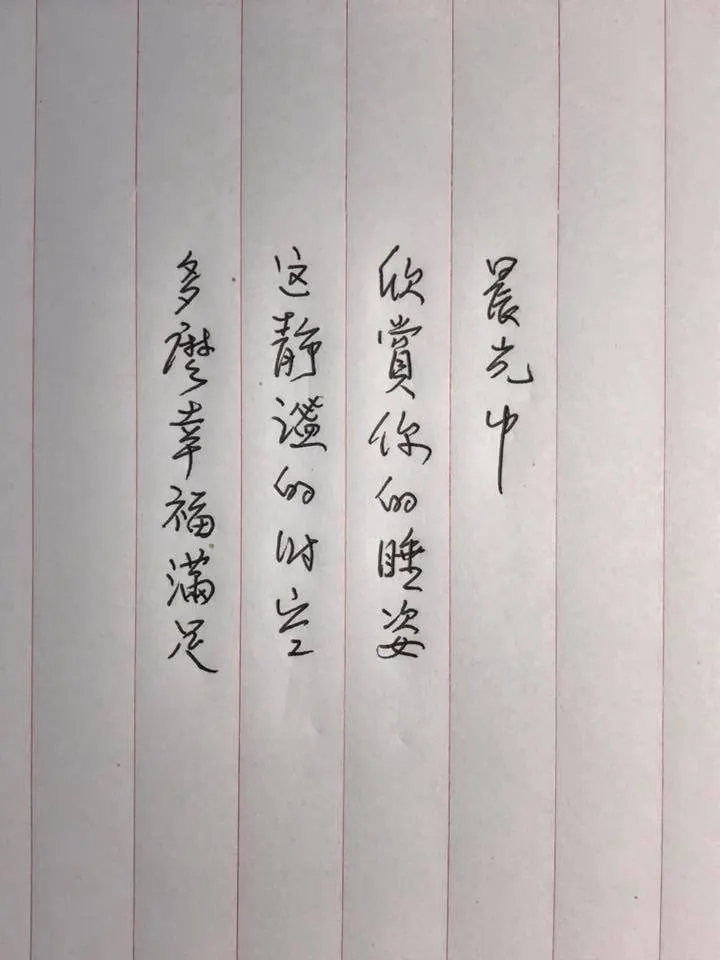 晨光中
欣賞你的睡姿
这静谧的时空
多麼幸福满足